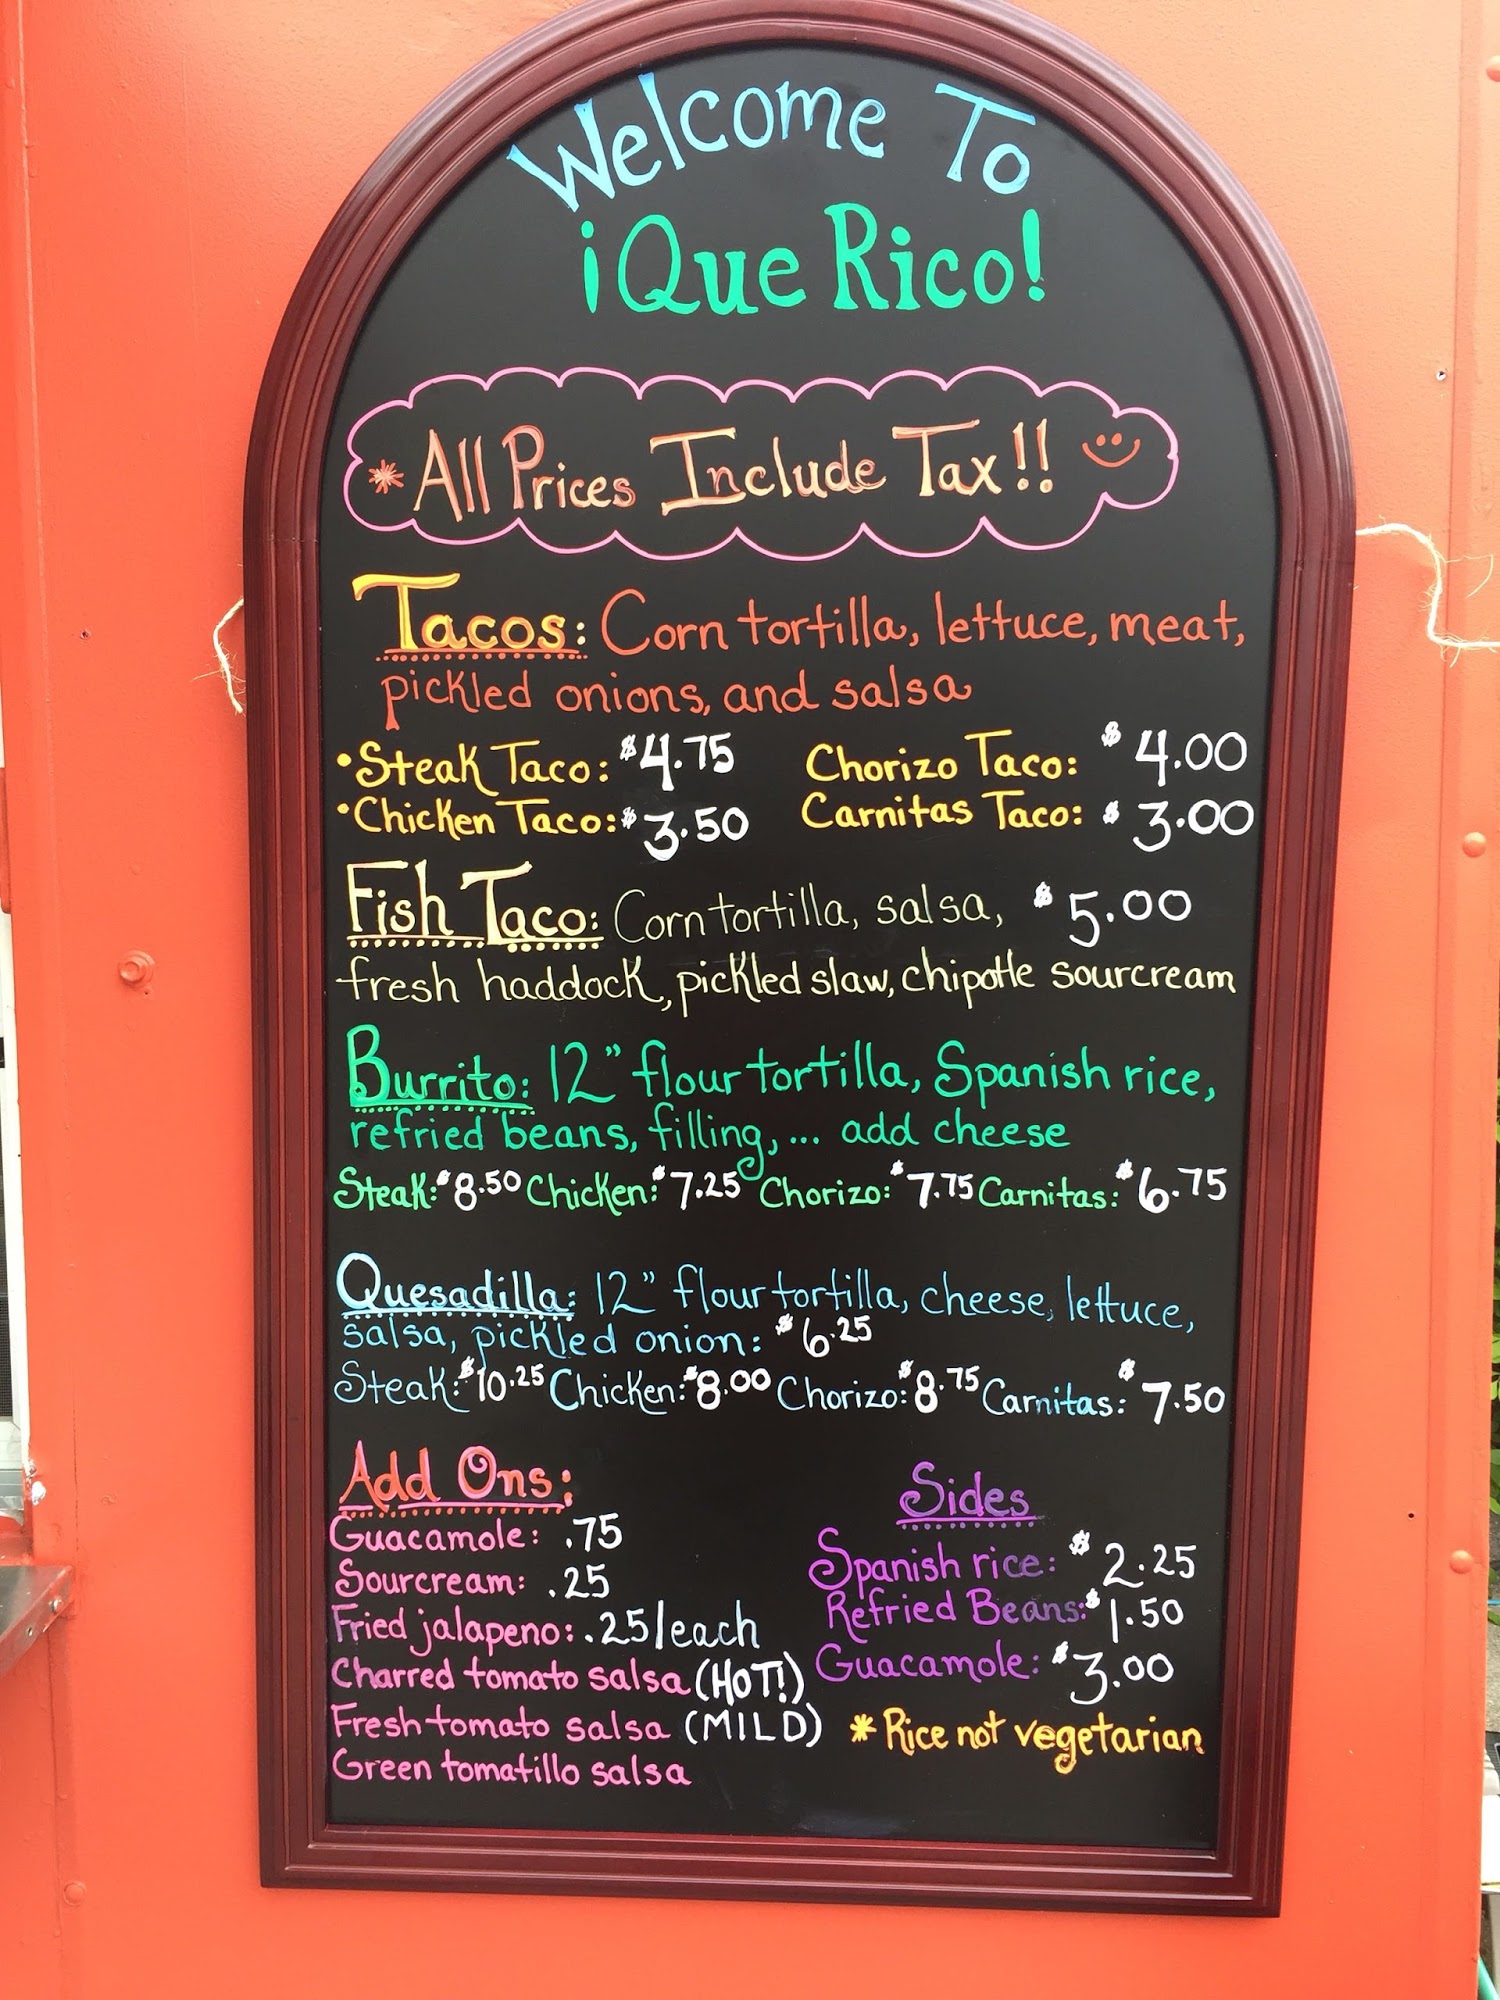 Welcome To
¡Que Rico!
* All Prices Include Tax!!
Tacos: Corn tortilla, lettuce, meat,
pickled onions, and salsa
• Steak Taco: $4.75 Chorizo Taco: $4.00
• Chicken Taco: $3.50 Carnitas Taco: $3.00
Fish Taco: Corn tortilla, salsa, $5.00
fresh haddock, pickled slaw, chipotle sourcream
Burrito: 12" flour tortilla, Spanish rice,
refried beans, filling, ... add cheese
Steak: $8.50 Chicken: $7.25 Chorizo: $7.75 Carnitas: $6.75
Quesadilla: 12" flour tortilla, cheese, lettuce,
salsa, pickled onion: $6.25
Steak: $10.25 Chicken: $8.00 Chorizo: $8.75 Carnitas: $7.50
Add Ons:
Guacamole: .75
Sourcream: .25
Fried jalapeno: .25/each
Charred tomato salsa (HOT!)
Fresh tomato salsa (MILD)
Green tomatillo salsa
Sides
Spanish rice: $2.25
Refried Beans: $1.50
Guacamole: $3.00
* Rice not vegetarian